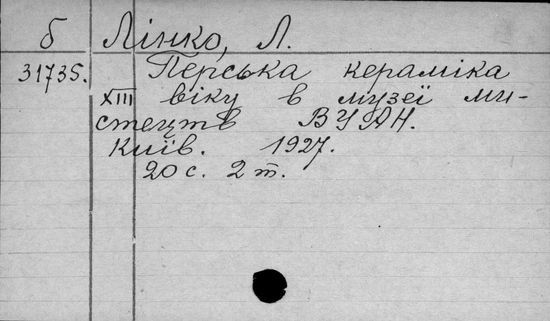 б Лінко, Л.
31735. Перська кераміка
XIII віку в музеї ми-
стецтв ВУАН.
Київ. 1927.
20 с. 2 т.